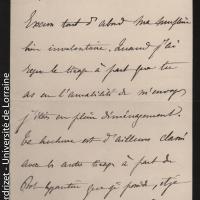 Excuse tout d'abord ma
involontaire. Quand j'ai
reçu le tirage à part que tu
as eu l'amabilité de m'envoyer
j'étais en plein déménagement.
Ta brochure est d'ailleurs classée
avec les autres tirages à part de
que je possède, et je
Perdrizet - Université de Lorraine